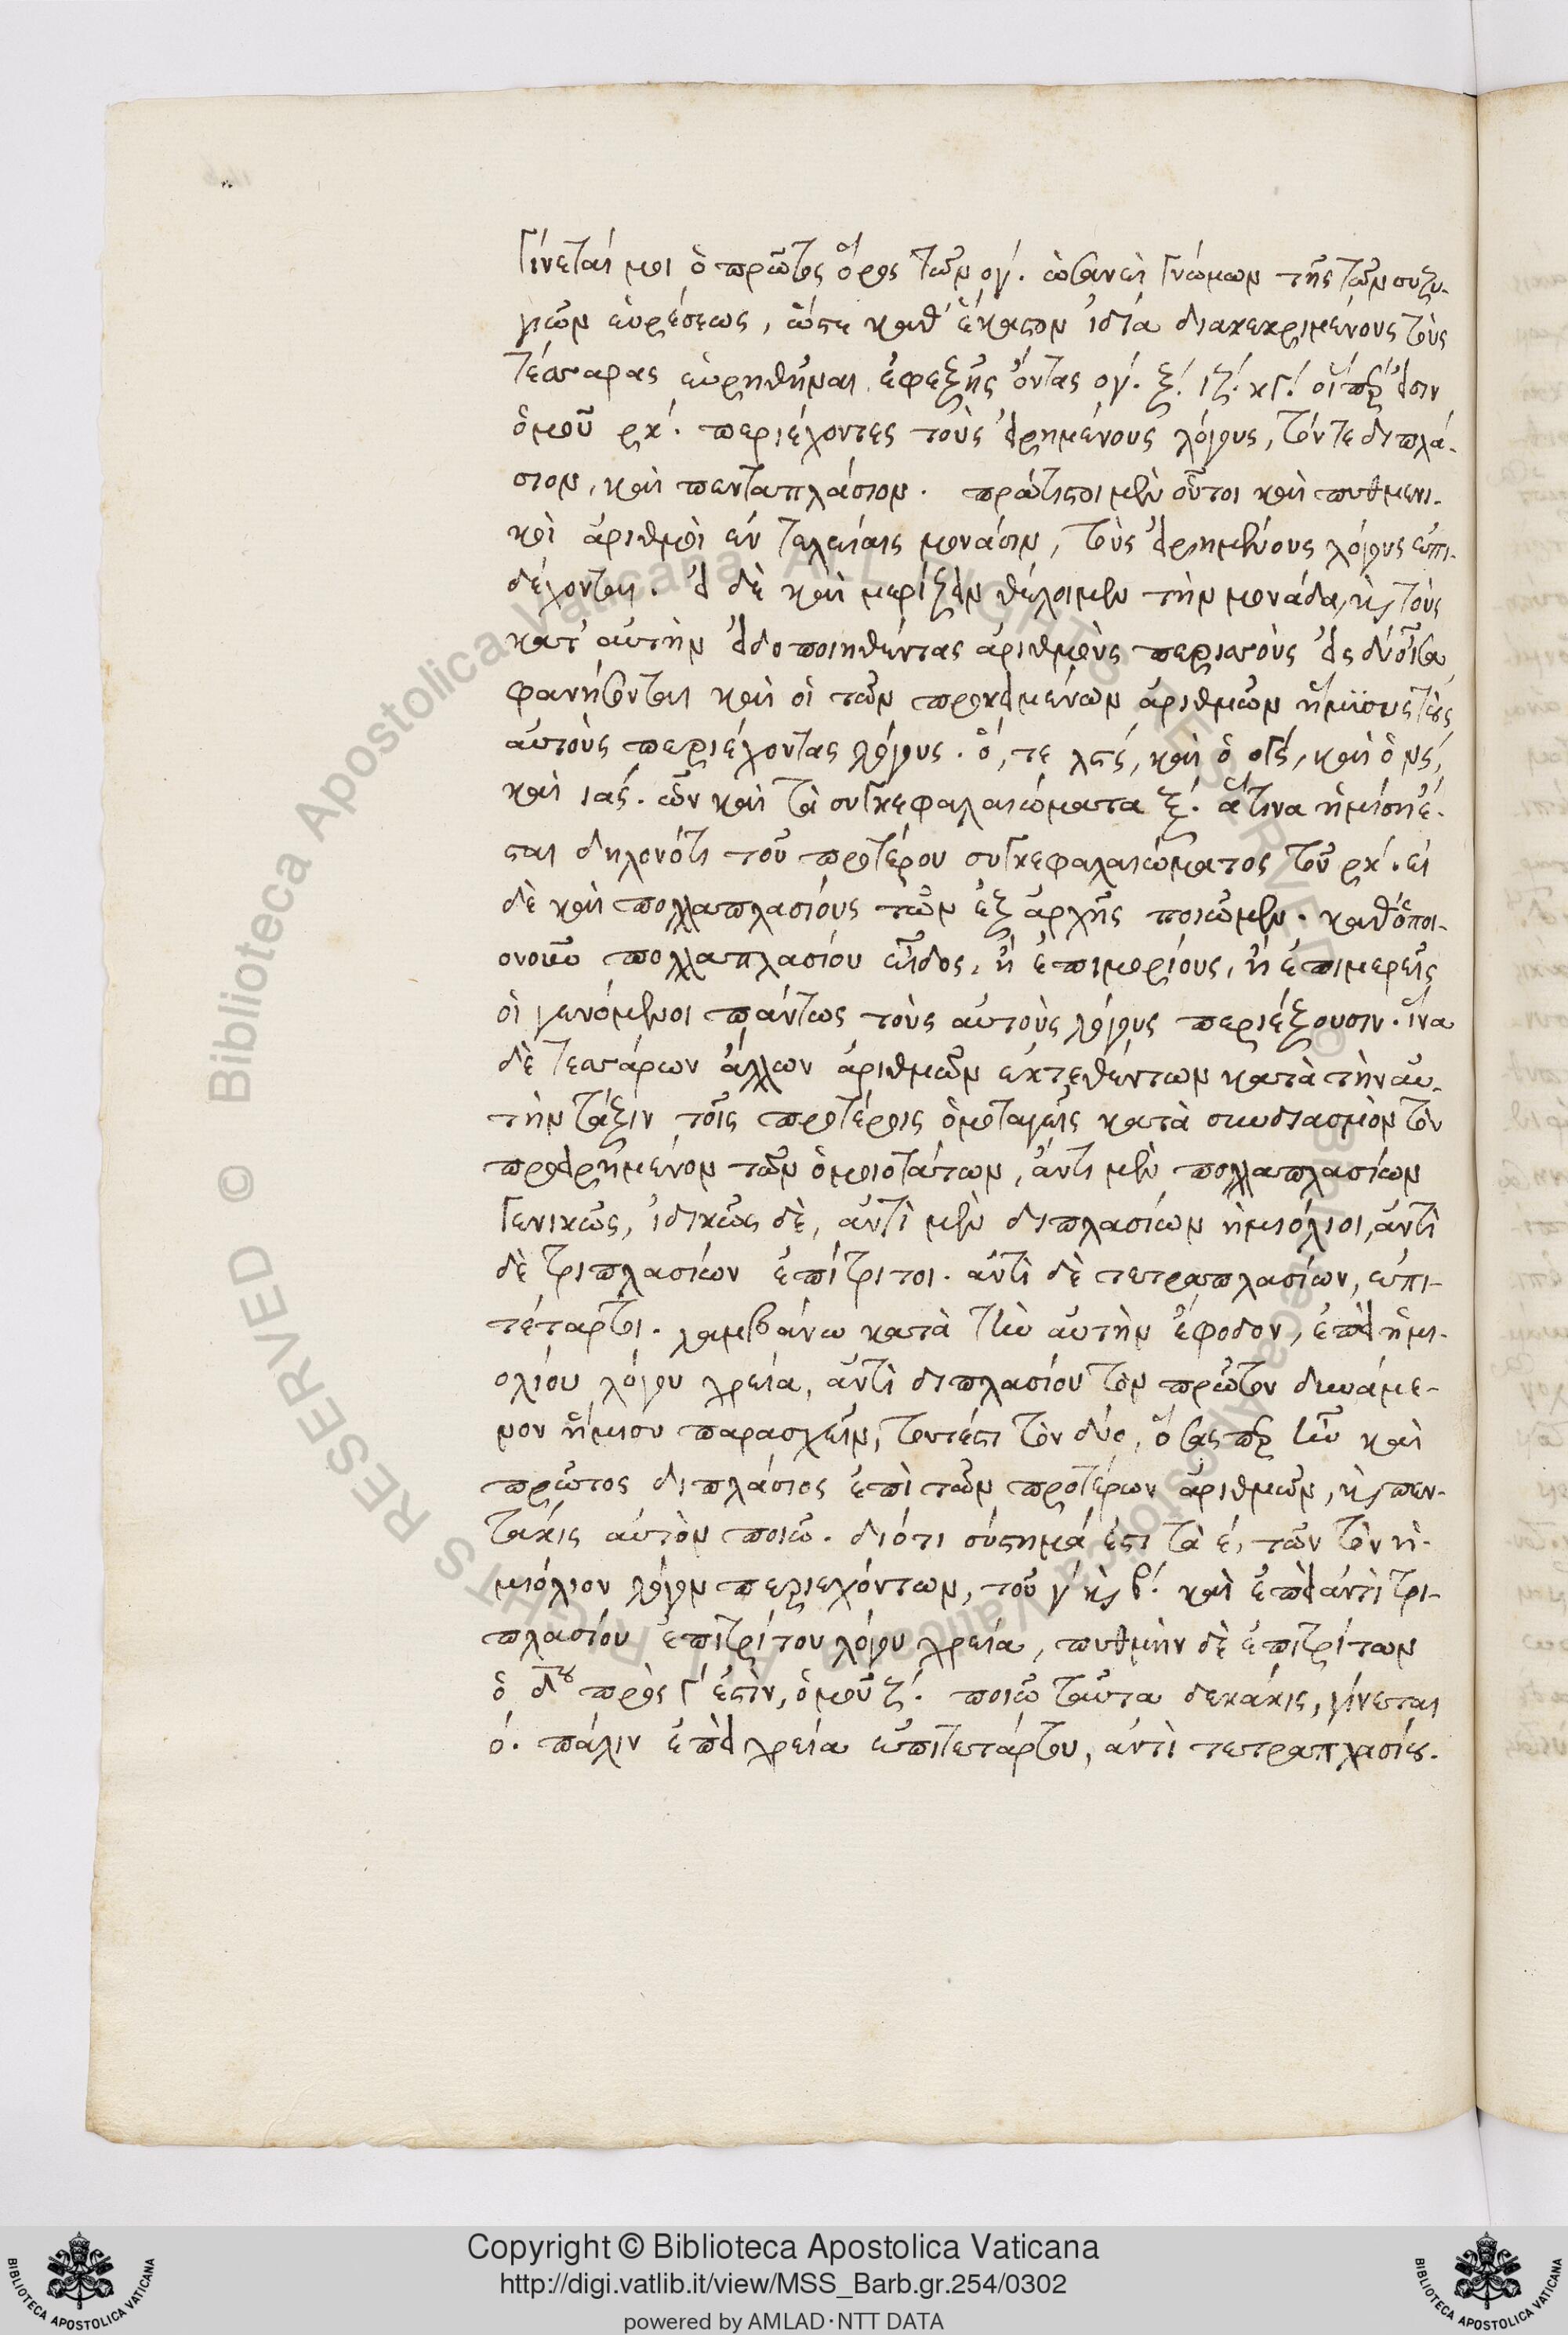 Γίνεταί μοι ὁ πρῶτος ὅρος τῶν ογ΄. ὡσανεὶ Γνώμων τῆς τῶν συζυ-
γιῶν εὑρέσεως, ὥστε καθ' ἕκαστον ἰδία διακεκριμένους τοὺς
τέσσαρας εὑρηθῆναι ἐφεξῆς ὄντας ογ΄. ξ΄. ιζ΄. κΓ΄. οἵπερ εἰσιν
ὁμοῦ ρκ΄. περιέχοντες τοὺς εἰρημένους λόγους, τόν τε διπλά-
σιον, καὶ πενταπλάσιον. πρώτιστοι μὲν οὗτοι καὶ πυθμενι-
κοὶ ἀριθμοὶ ἐν τελείαις μονάσιν, τοὺς εἰρημένους λόγους ἐπι-
δέχονται. εἰ δὲ καὶ μερίζειν θέλοιμεν τὴν μονάδα, κὶ τοὺς
κατ' αὐτὴν εἰδοποιηθέντας ἀριθμοὺς περισσοὺς εἰς δύο ἶσα
φανήσονται καὶ οἱ τῶν προκειμένων ἀριθμῶν ἡμίσυς τοὺς
αὐτοὺς περιέχοντας λόγους. ὅ, τε λςς΄, καὶ ὁ
καὶ ιας΄. ὧν καὶ τὰ συΓκεφαλαιώματα ξ΄. ἅτινα ἡμίση ἔ-
σται δηλονότι τοῦ προτέρου συΓκεφαλαιώματος τοῦ ρκ΄. εἰ
δὲ καὶ πολλαπλασίους τῶν ἐξ ἀρχῆς ποιῶμεν. καθ' ὁποι-
ονοῦν πολλαπλασίου εἶδος, ἢ ἐπιμορίους, ἢ ἐπιμερεῖς
οἱ γενόμενοι πάντως τοὺς αὐτοὺς λόγους περιέξουσιν. ἵνα
δὲ τεσσάρων ἄλλων ἀριθμῶν ἐκτεθέντων κατὰ τὴν αὐ-
τὴν τάξιν τοῖς προτέροις ὁμοταγεῖς κατὰ συνδιασμὸν τὸν
προειρημένον τῶν ὁμοιοτάτων, ἀντὶ μὲν πολλαπλασίων
Γενικῶς, ἰδικῶς δὲ, ἀντὶ μὲν διπλασίων ἡμιόλιοι, ἀντὶ
δὲ τριπλασίων ἐπίτριτοι. ἀντὶ δὲ τετραπλασίων, ἐπι-
τέταρτοι. λαμβάνω κατὰ τὴν αὐτὴν ἔφοδον, ἐπεὶ ἡμι-
ολίου λόγου χρεία, ἀντὶ διπλασίου τὸν πρῶτον δυνάμε-
νον ἥμισυ παρασχεῖν, τουτέστι τὸν δύο, ὅστις περ ἦν καὶ
πρῶτος διπλάσιος ἐπὶ τῶν προτέρων ἀριθμῶν, κὶ πεν-
τάκις αὐτὸν ποιῶ. διότι σύστημά ἐστι τὰ ε΄, τῶν τὸν ἡ-
μιόλιον λόγον περιεχόντων, τοῦ γ΄ κὶ β΄. καὶ ἐπεὶ ἀντὶ τρι-
πλασίου ἐπιτρίτου λόγου χρεία, πυθμὴν δὲ ἐπιτρίτων
ὁ δου πρὸς Γ΄ ἐστὶν, ὁμοῦ ζ΄. ποιῶ ταῦτα δεκάκις, γίνεται
ο΄. πάλιν ἐπεὶ χρεία ἐπιτετάρτου, ἀντὶ τετραπλασίου.
Copyright © Biblioteca Apostolica Vaticana
http://digi.vatlib.it/view/MSS_Barb.gr.254/0302
powered by AMLAD·NTT DATA